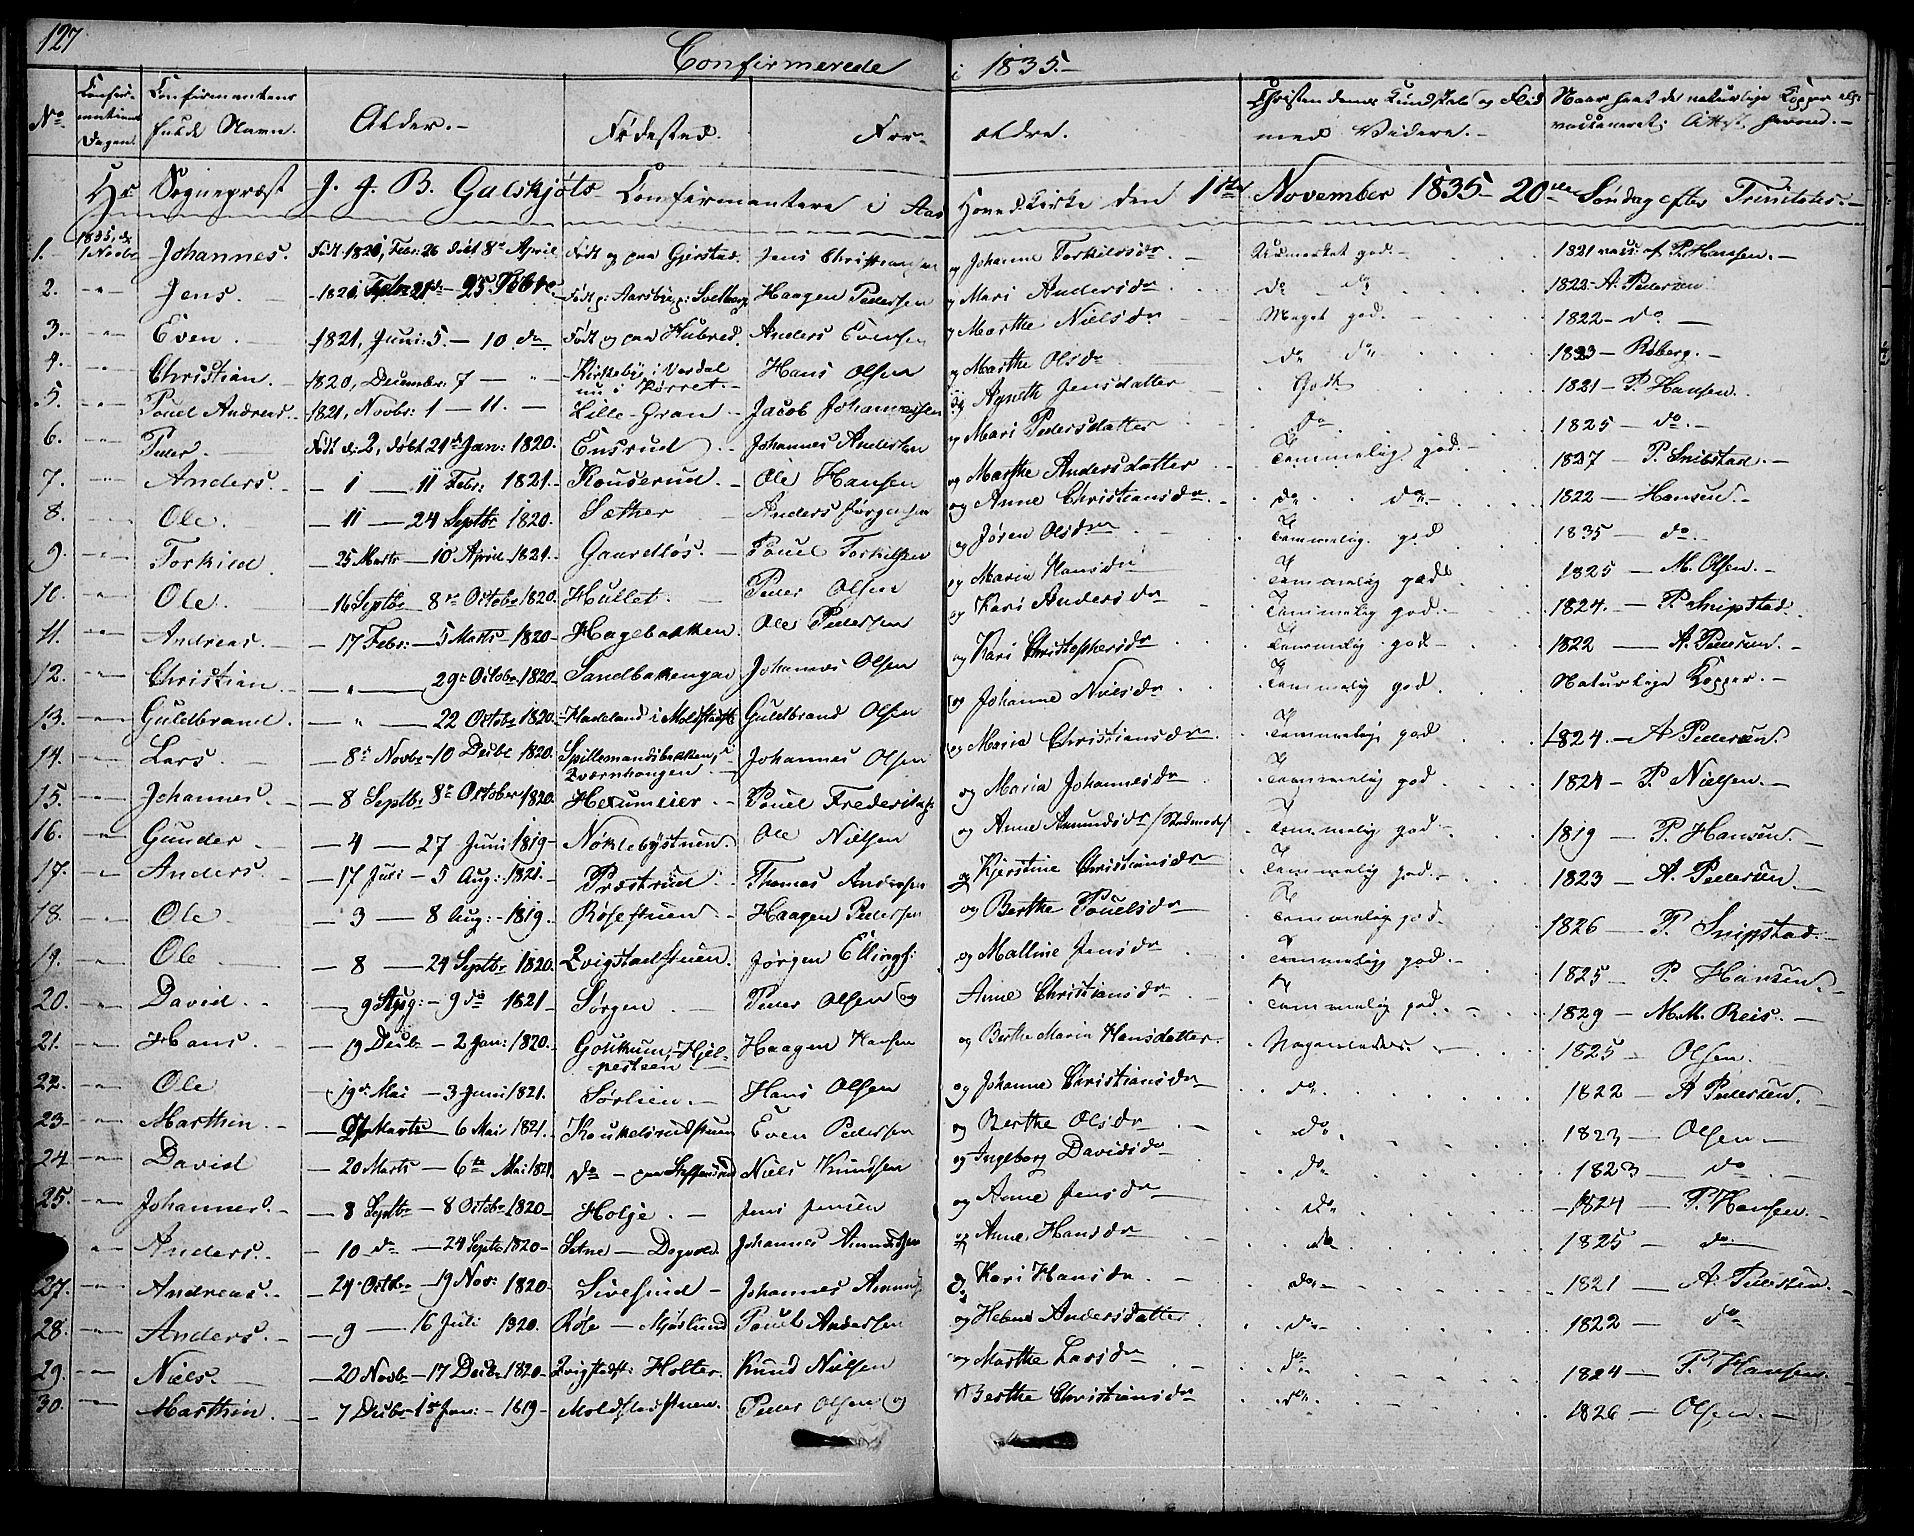 127
Confirmerede i 1835.-
No. Confirmations Dagen. Confirmantens fulde Navn. Alder.- Fødested. For- ældre. Christendoms Kundskab og Flid med Videre.- Naar havt de naturlige Kopper eller vaccineret; Attest herom.-
Hr Sognepræst J. J. B. Galskjøts Confirmantere i Aas Hovedkirke den 1ste November 1835- 20de Søndag efter Trinitatis.-
1. 1835, d. 1 Novbr Johannes. Født 1820, Febr: 26 døbt 8de April Født og paa Gjerstad. Jens Christiansen og Johanne Torkilsdr. Udmærket god. 1821 vacc: af P. Hansen.-
2. -"- Jens. -25 Født p: Aarsby, p: Haagen Pedersen og Mari Andersdr do do 1822- A. Pedersen
3. -"- Even. -1821, Juni: 5. - 10. do. Født og paa Hubred. Anders Evensen og Marthe Nielsdr Meget god. 1822- do -
4. -"- Christian. 1820, December: 7 - "- Kirkeby i Vardal nu i Hans Olsen og Marthe Olsdr do do 1823- Røberg.-
5. -"- Pouel Andreas. 1821, Novbr: 1 - 11. - Lille-Gran - Jacob Johannessen og Agneth Jensdatter Godt 1821- P. Hansen.
6. -"- Peder. - Født d: 2, døbt 21de Jan: 1820. Ensrud Johannes Andersen og Mari Pedersdatter do. 1825 - do.-
7. -"- Anders. - 1 - 11 Febr: 1821.- Ole Hansen og Marthe Andersdatter Temmelig god.- 1827 - P. Snibstad.-
8. -"- Ole. - 11 - 24 Septbr 1820. Sæther Anders Jørgensen og Anne Christiansdr. do. do.- 1822 - Hansen.-
9. -"- Torkild. - 25 Marts - 10 April 1821. Gaardløs.- Pouel Torkilsen og Jøren Olsdr Temmelig god 1835 - do.
10. -"- Ole. - -16 Septbr 8de Octobr 1820. Hullet. - Peder Olsen og Maria Hansdr Temmelig godt 1825 - M. Olsen.-
11. -"- Andreas. - 17 Febr: - 5 Marts - 1820- Hagebakken. Ole Pedersen og Kari Andersdr Temmelig god.- 1824. - P. Snipstad.
12. -"- Christian - " - 29de Octobr 1820. Sandbakkengen Johannes Olsen og Kari Christophersdr Temmelig god - 1822 - A. Pedersen.-
13. -"- Guldbrand. - " - 22 Octobr 1820. Hadeland i Guldbrand Olsen og Johanne Nielsdr Temmelig god Naturlige Kopper.-
14. -"- Lars. - 8de Novbr - 10 Decbr 1820. Spillemandsbakken, Qværnhaugen.- Johannes Olsen og Maria Christiansdr Temmelig god 1824.- A Pedersen.
15. -"- Johannes. - 8 Septbr 8de October 1820. Pouel Frederiks: og Maria Johannesdr Temmelig god 1821 - P. Nielsen.-
16. -"- Gunder - 4 - 27 Juni 1819- Nøklebystuen. Ole Nielsen og Anne Amundsdr Temmelig god. 1819 - P. Hansen.-
17. -"- Anders. - 17 Juli - 5 Aug: 1821. Præstrud Thomas Andersen og Kjerstine Christiansdr Temmelig god.- 1823 - A. Pedersen.
18. -"- Ole - 3 - 8 Aug: - 1819. Røsestuen - Haagen Pedersen og Berthe Pouelsdr - Temmelig god. 1826 - P. Snipstad.-
19. -"- Ole - 8 - 24 Septbr 1820. Qvigstadstuen. Jørgen Ellings: og Malline Jensdr Temmelig god.- 1825 - P. Hansen.-
20. -"- David. - 9 Aug: - 9 do 1821 - Sørgen. - Peder Olsen og Anne Christiansdr Temmelig god. 1829 - M. M. Reis.-
21. -"- Hans. - 19 Decbr - 2 Jan: 1820. Hjelpesteen Haagen Hansen og Berthe Maria Hansdatter. Nogenledes. - 1825 - Olsen.
22. -"- Ole - 19de Mai - 3 Juni 1821. Sørlien.- Hans Olsen og Johanne Christiansdr do. 1822 - A Pedersen.
23. -"- Marthin. - Marts - 6 Mai 1821. Even Pedersen og Berthe Olsdr do. 1823 - Olsen -
24 -"- David - 20 Marts - 6te Mai 1821 do - paa Steffensrud Niels Knudsen og Ingeborg Davidsdr do 1823 - do
25. -"- Johannes. - 8 Septbr - 8 Octobr 1820- Holje. - Jens Jensen og Anne Jensdr do 1824 P. Hansen.-
-"- Anders. - 10 do - 24 Septbr 1820- Dogvold. Johannes Amundsen og Anne Hansdr do 1825 - do
27. -"- Andreas. - 24 Octbr - 19 Nov: 1820. Sivesind - Johannes Amunds: og Kari Hansdr. - do- 1821 - A: Pedersen.
28. -"- Anders. - 9 - 16 Juli 1820. Røse - Mjøslund Pouel Andersen og Helene Andersdatter. do- 1822 - do
29. -"- Niels. - 20 Novbr - 17 Decbr 1820- Qvigstadst: Holter. Knud Nielsen og Marthe Larsdr do 1824 - P. Hansen.
30. -"- Marthin. - 7 Decbr - 1819 - Moldstadstuen. Peder Olsen og Berthe Christiansdr do. 1826 - Olsen.-